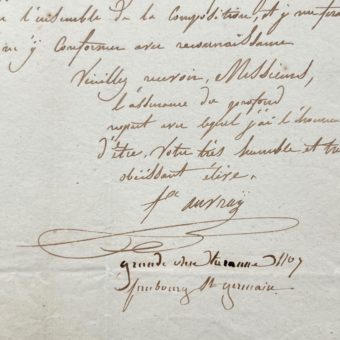 l'ensemble de la composition, et je me ferai
m'y conformer avec reconnaissance
Veuillez recevoir, Messieurs,
l'assurance du profond
respect avec lequel j'ai l'honneur
d'être, Votre très humble et
obéissant élève.
auvray
grande rue 1107
faubourg St germain.